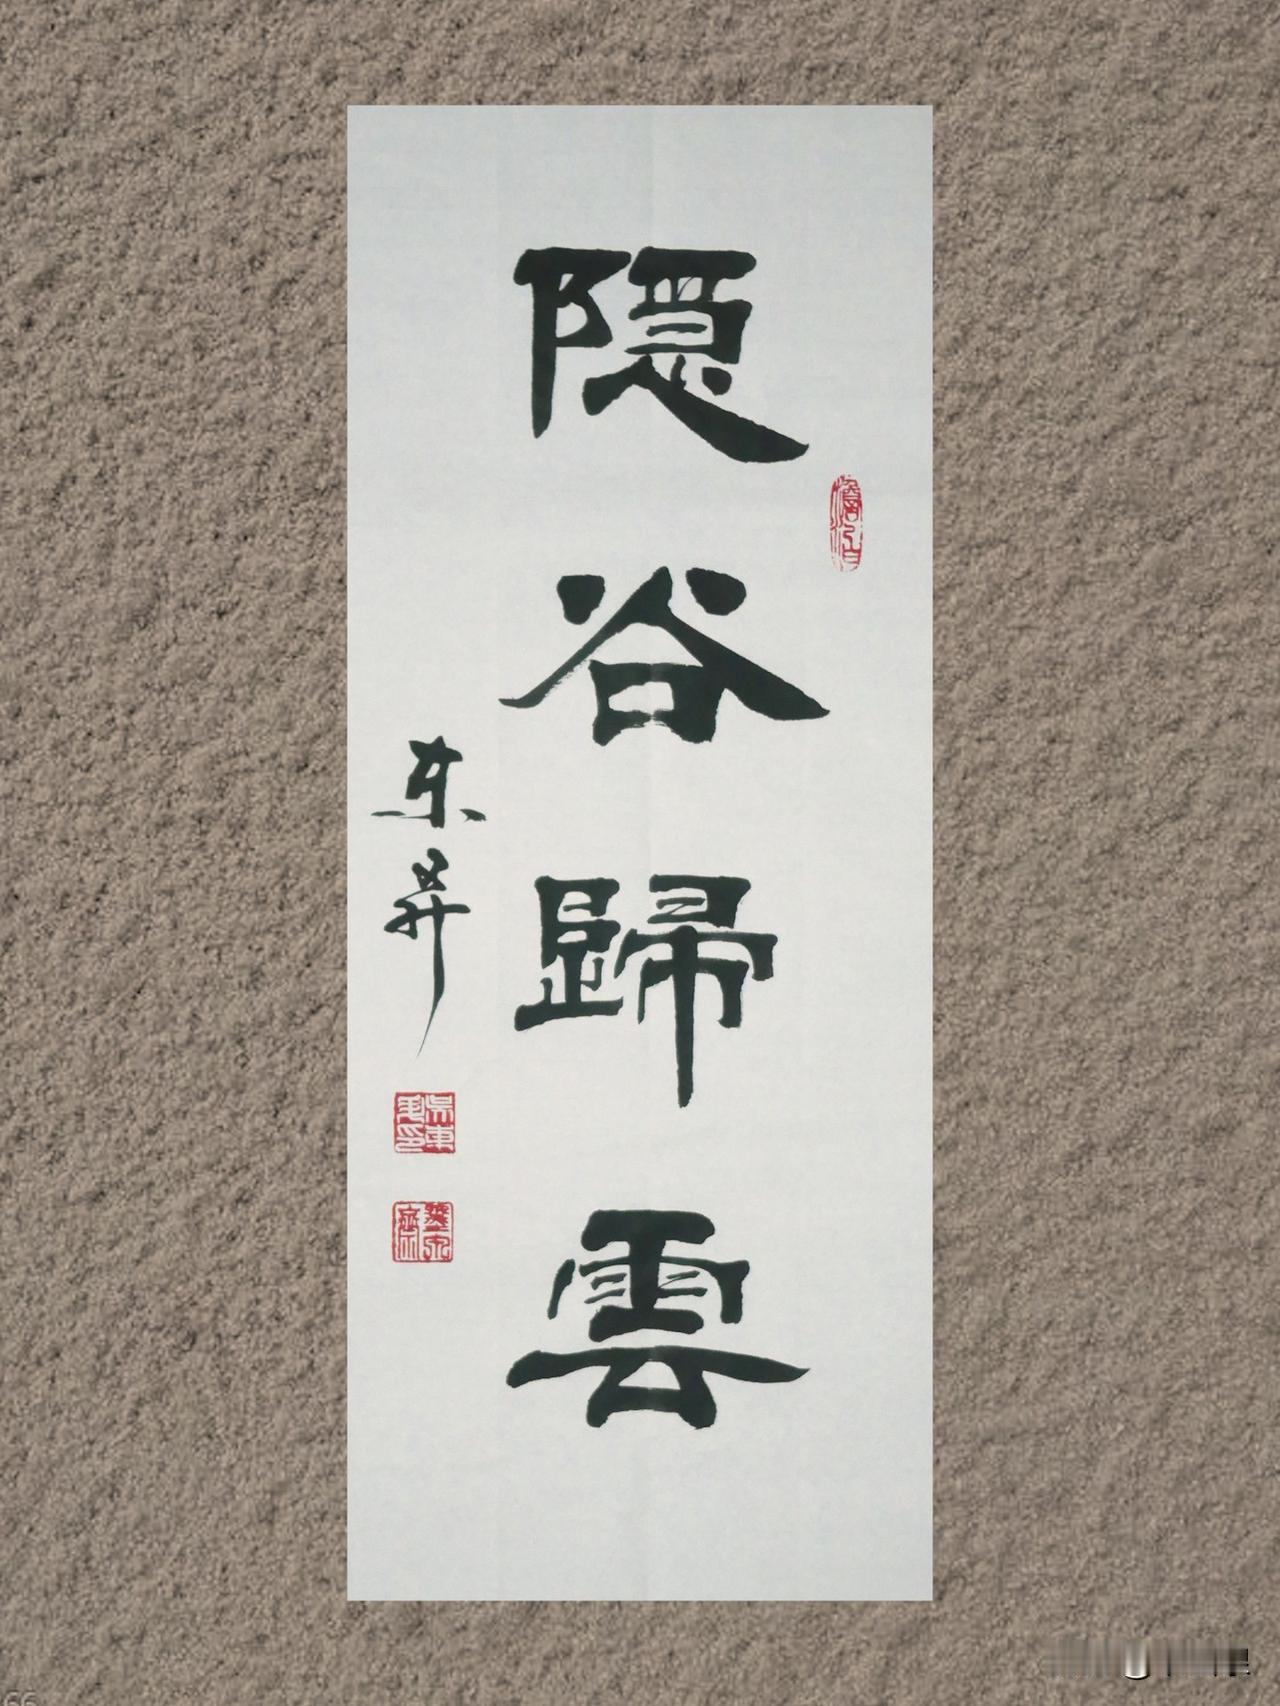 隱谷歸雲
东昇